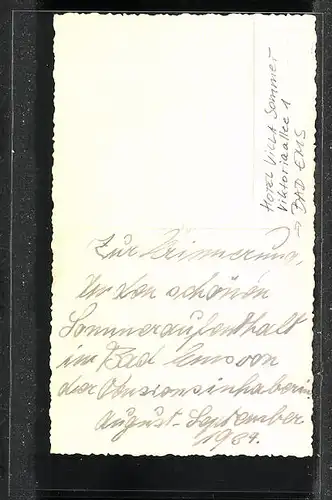 HOTEL VILLA Sommer
Viktoriaallee 1
→ BAD EMS
Zur Erinnerung,
An den schönen
Sommeraufenthalt
im Bad Ems von
der Pensionsinhaberin
August-September
1989.